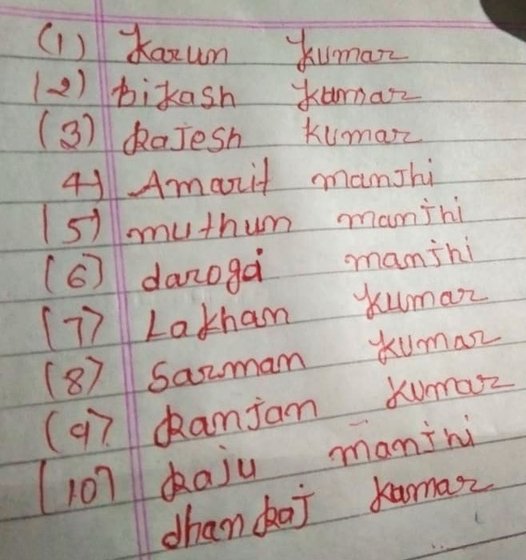 (1) Karun Kumar
(2) bikash kumar
(3) Rajesh kumar
4) Amarit manjhi
(5) muthun manjhi
(6) daroga manjhi
(7) Lakhan kumar
(8) Sarman kumar
(9) Ranjan kumar
(10) Raju manjhi
dhanRaj kumar